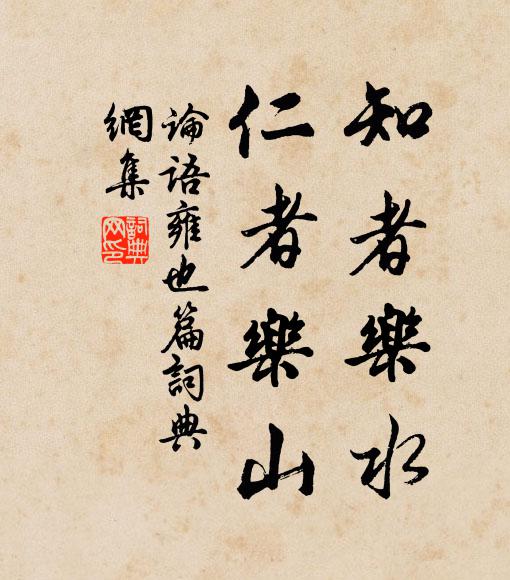 知者樂水
仁者樂山
論語雍也篇詞典
網集
詞典
网印